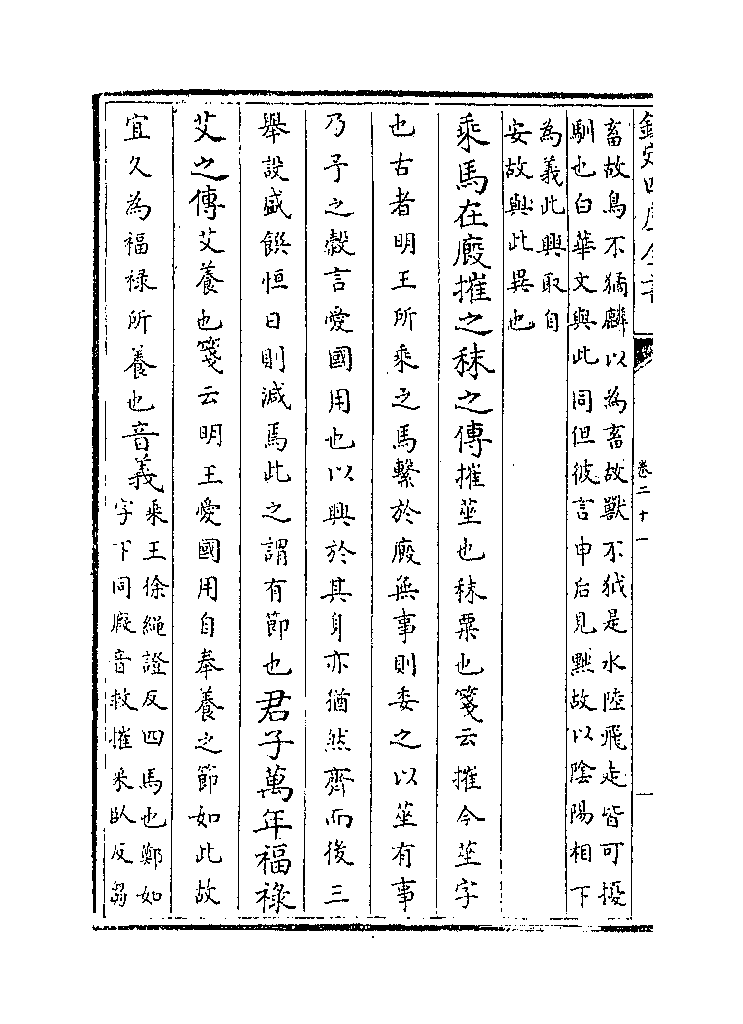 欽定四庫全書
卷二十一
一
畜故鳥不獝麟以為畜故獸不狘是水陸飛走皆可擾
馴也白華文與此同但彼言申后見黜故以陰陽相下
為義此興取自
安故與此異也
乘馬在廄摧之秣之傳摧莝也秣粟也箋云摧今莝字
也古者明王所乘之馬繫於廄無事則委之以莝有事
乃予之穀言愛國用也以興於其身亦猶然齊而後三
舉設盛饌恒日則減焉此之謂有節也君子萬年福祿
艾之傳艾養也箋云明王愛國用自奉養之節如此故
宜久為福祿所養也音義
乘王徐繩證反四馬也鄭如
字下同廄音救摧采臥反芻